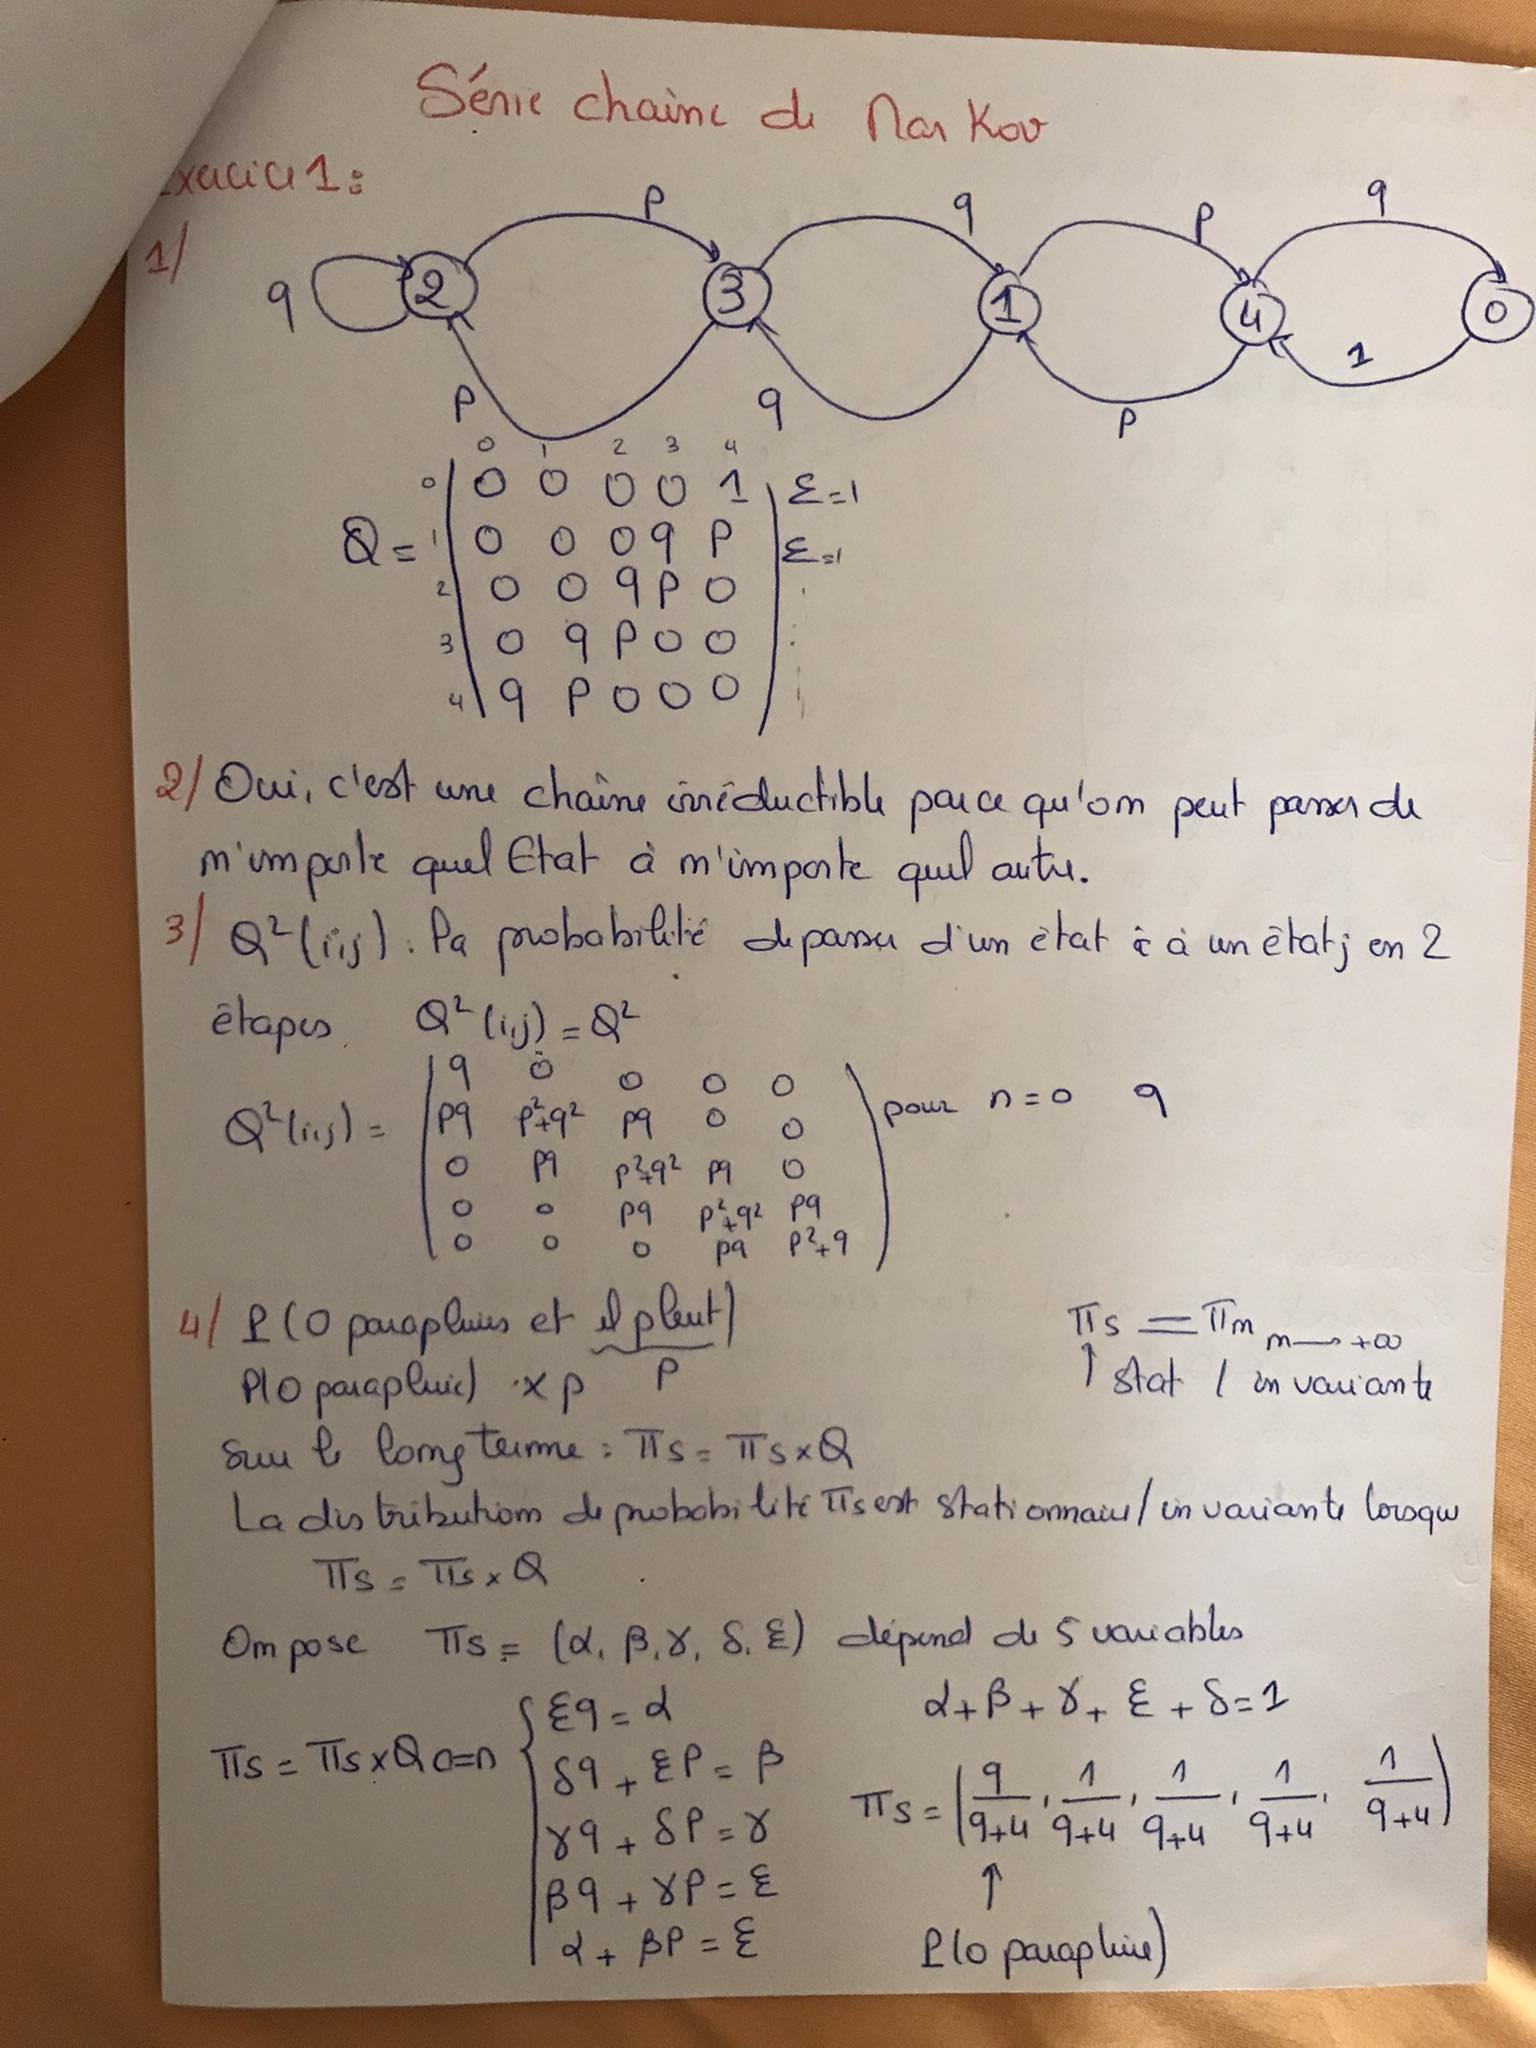 Série chaine de Markov
Exercice 1:
1/
q 2 p 3 q 1 p 4 q 0
p q p 1
0 1 2 3 4
0 0 0 0 0 1 Σ=1
Q = 1 0 0 0 q p Σ=1
2 0 0 q p 0
3 0 q p 0 0
4 q p 0 0 0
2/ Oui, c'est une chaîne irréductible parce qu'on peut passer de
n'importe quel Etat à n'importe quel autre.
3/ Q²(i,j) : la probabilité de passer d'un état i à un état j en 2
étapes Q²(i,j) = Q²
q 0 0 0 0
Q²(i,j) = pq p²+q² pq 0 0 pour n=0 q
0 pq p²+q² pq 0
0 0 pq p²+q² pq
0 0 0 pq p²+q
4/ P(0 parapluies et il pleut) πs = πn n→+∞
P(0 parapluie) × p p ↑ stat / invariante
Sur le long terme : πs = πs × Q
La distribution de probabilité πs est stationnaire/invariante lorsque
πs = πs × Q
On pose πs = (α, β, γ, δ, ε) dépend de 5 variables
εq = α α + β + γ + ε + δ = 1
πs = πs × Q <=> δq + εp = β πs = (q/q+4, 1/q+4, 1/q+4, 1/q+4, 1/q+4)
γq + δp = γ
βq + γp = ε ↑
α + βp = ε P(0 parapluie)